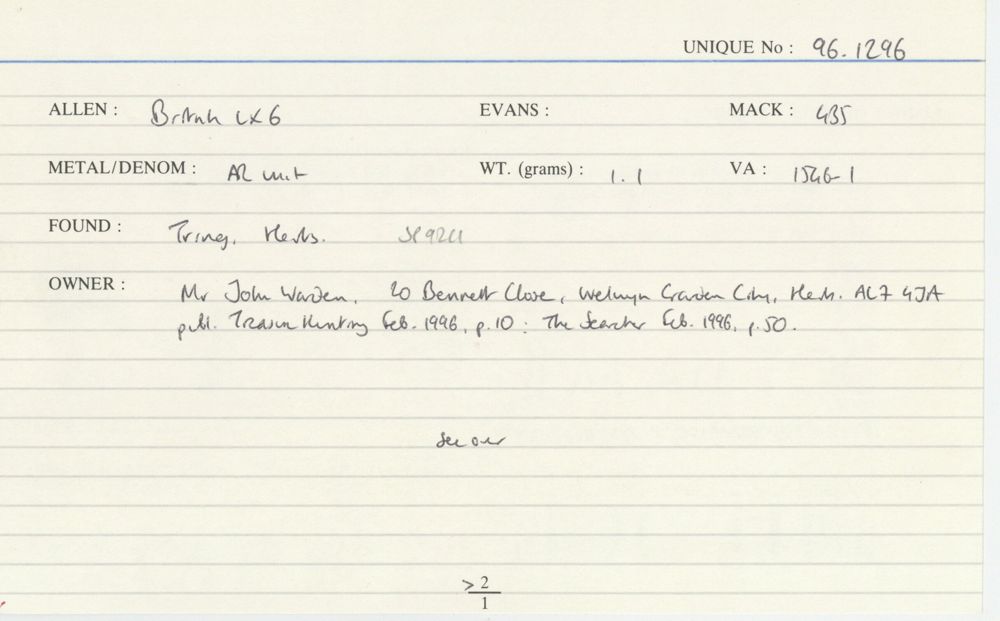 UNIQUE No : 96.1296
ALLEN : British LX6 EVANS : MACK : 435
METAL/DENOM : AR unit WT. (grams) : 1.1 VA : 1546-1
FOUND : Tring, Herts. SP9211
OWNER : Mr John Warden, 20 Bennett Close, Welwyn Garden City, Herts. AL7 4JA
publ. Treasure Hunting Feb. 1996, p.10 ; The Searcher Feb. 1996, p.50.
see over
> 2
1